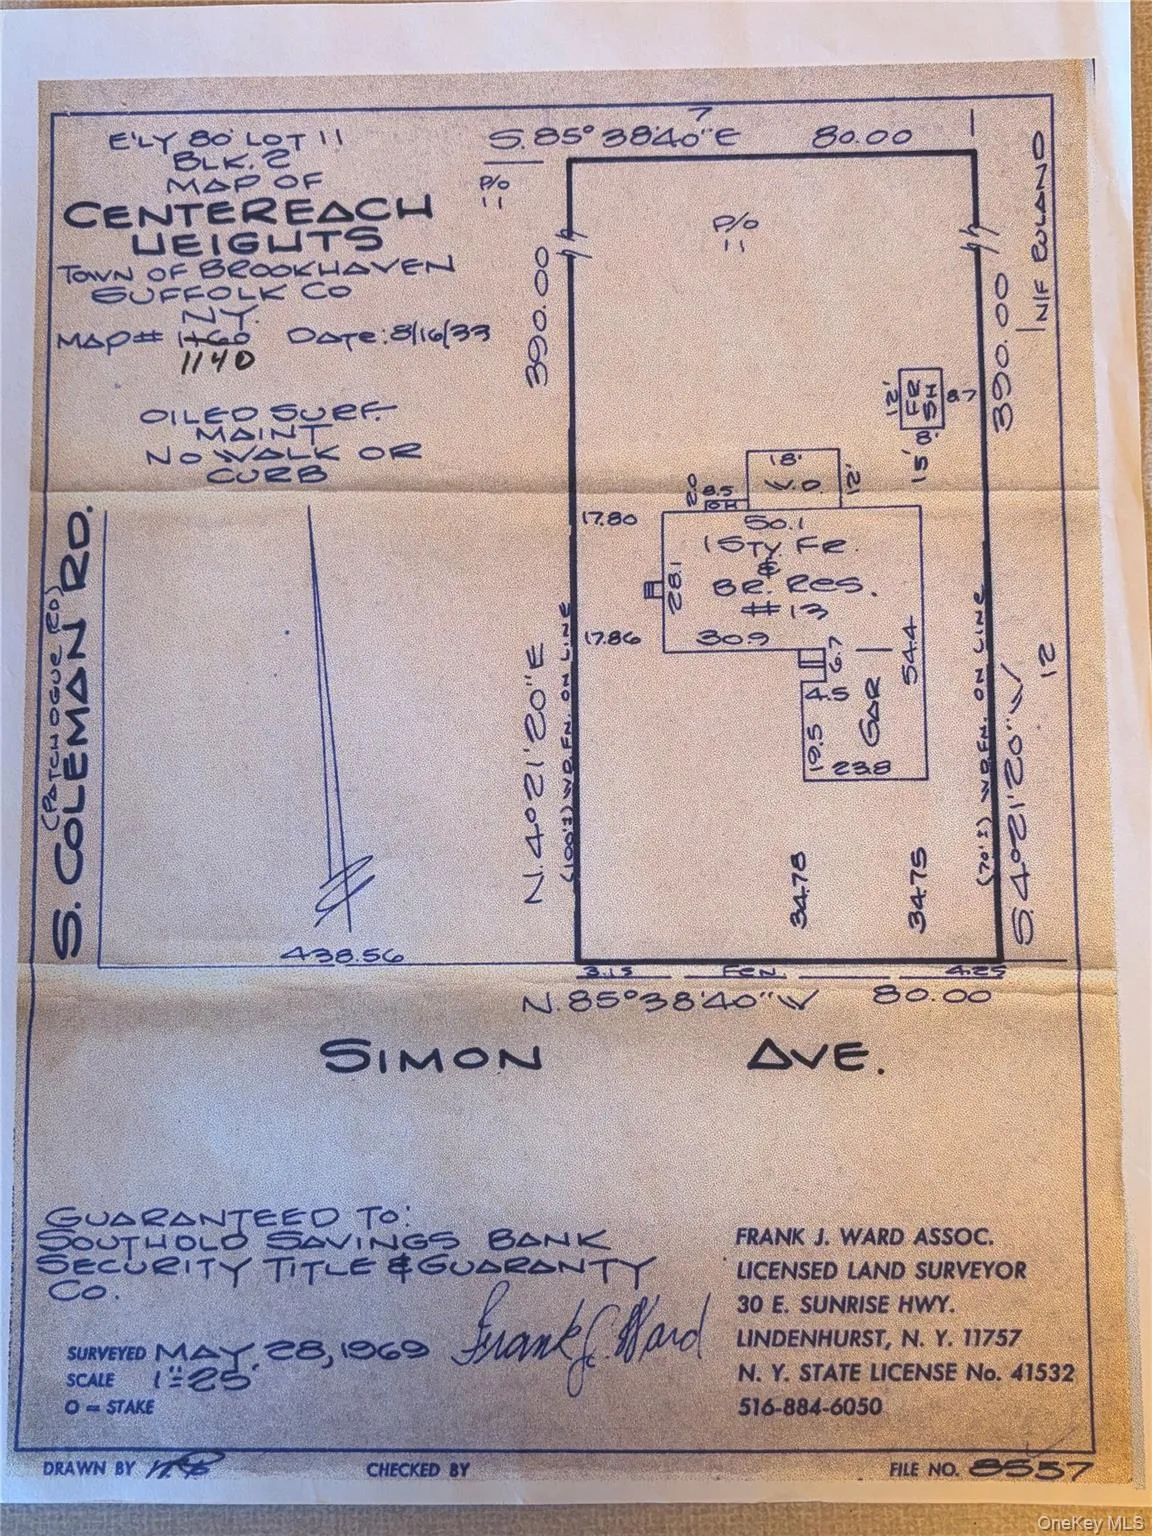 E'LY 80' LOT 11
BLK. 2
MAP OF
CENTEREACH
HEIGHTS
TOWN OF BROOKHAVEN
SUFFOLK CO
N.Y.
MAP# 1160 DATE: 8/16/33
1140
OILED SURF.
MAINT
NO WALK OR
CURB
7
S. 85° 38' 40" E 80.00
P/O
11
P/O
11
390.00
390.00
N/F RULAND
12'
FR
SH
8.7
8'
15'
18'
W.D.
12'
2.0
8.5
OH
17.80
50.1
1 STY. FR.
&
BR. RES.
#13
28.1
17.86
30.9
6.7
54.4
4.5
GAR
19.5
23.8
12
S. COLEMAN RD.
(PATCHOGUE RD)
N. 4° 21' 20" E
(100'±) WD. FN. ON LINE
(70'±) WD. FN. ON LINE
S. 4° 21' 20" W
34.78
34.75
438.56
3.15 FEN. 4.25
N. 85° 38' 40" W 80.00
SIMON AVE.
GUARANTEED TO:
SOUTHOLD SAVINGS BANK
SECURITY TITLE & GUARANTY
CO.
Frank J. Ward
SURVEYED MAY 28, 1969
SCALE 1"=25'
O = STAKE
FRANK J. WARD ASSOC.
LICENSED LAND SURVEYOR
30 E. SUNRISE HWY.
LINDENHURST, N. Y. 11757
N. Y. STATE LICENSE No. 41532
516-884-6050
DRAWN BY
CHECKED BY
FILE NO. 8557
OneKey MLS